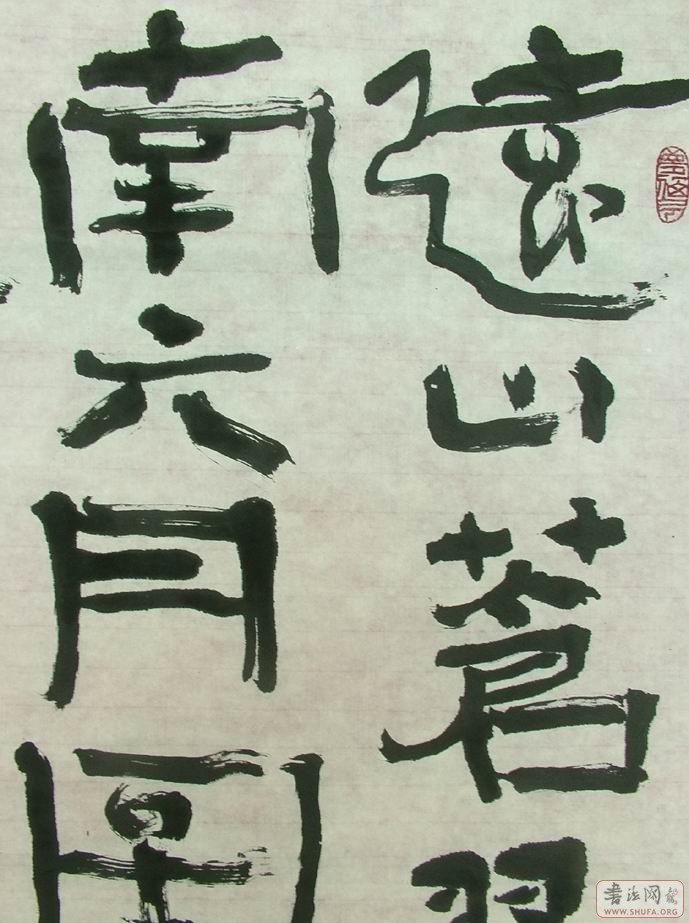 遠山蒼
南六月
書法网
WWW.SHUFA.ORG